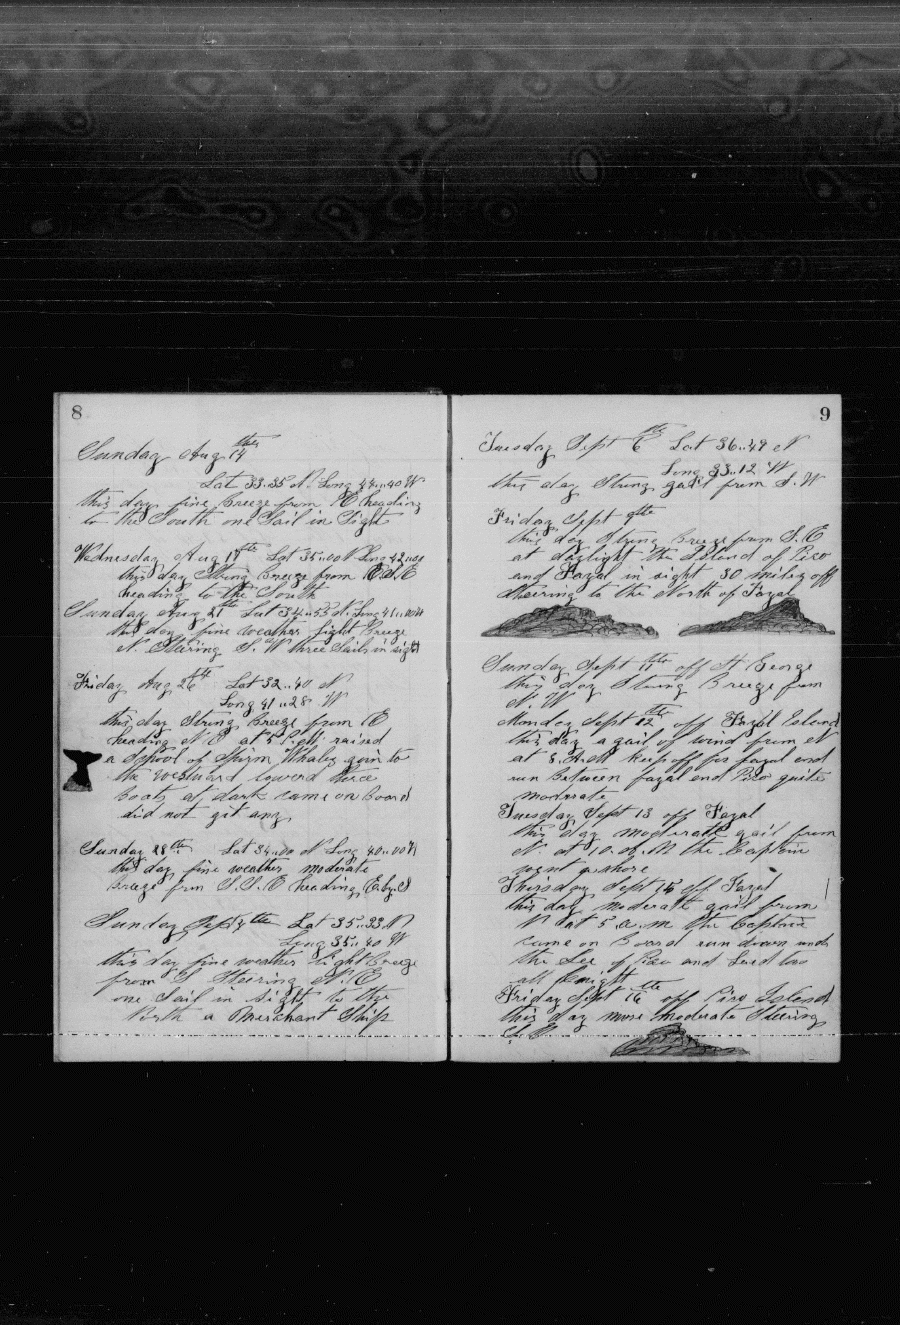 8
Sunday Aug 14th
Lat 33..35 N. Long 44..40 W
this day fine breeze from E heading
to the South one Sail in Sight
Wednesday Aug 17th Lat 35..00 N Long 42..00
this day Strong breeze from E S E
heading to the South
Sunday Aug 21th Lat 34..53 N. Long 41..00 W
this day fine weather light Breeze
N Stering S. W three Sails in sight
Friday Aug 26th Lat 32..40 N
Long 41..28 W
this day Strong breeze from E
heading N E at 5 P.M. raised
a School of Spirm Whales goin to
the westward lowerd three
boats at dark came on board
did not git any
Sunday 28th Lat 34..00 N Long 40..00 W
this day fine weather moderate
breeze frm S.S.E heading E by S
Sunday Sept 4th Lat 35..33 N
Long 35..40 W
this day fine weather light breeze
from S Steering N. E
one Sail in Sight to the
North a Merchant Ship
9
Tuesday Sept 6th Lat 36..49 N
Long 33..12 W
this day Strong gail from S. W
Friday Sept 9th
this day Strong breeze from S. E
at daylight the Island of Pico
and Fayal in sight 30 miles off
Steering to the North of Fayal
Sunday Sept 11th off St George
this day Strong Breeze from
N. W
Monday Sept 12th off Fayal Island
this day a gail of wind from N
at 8. A.M keep off for fayal and
run between fayal and Pico quite
moderate
Tuesday Sept 13 off Fayal
this day moderate gail from
N. at 10. A. M the Captain
went a shore
Thirsday Sept 15 off Fayal
this day moderate gail from
N at 5. a. m the Captain
came on Board run down under
the Lee of Pico and Laid too
all night
Friday Sept 16th off Pico Island
this day more moderate Steering
S. E